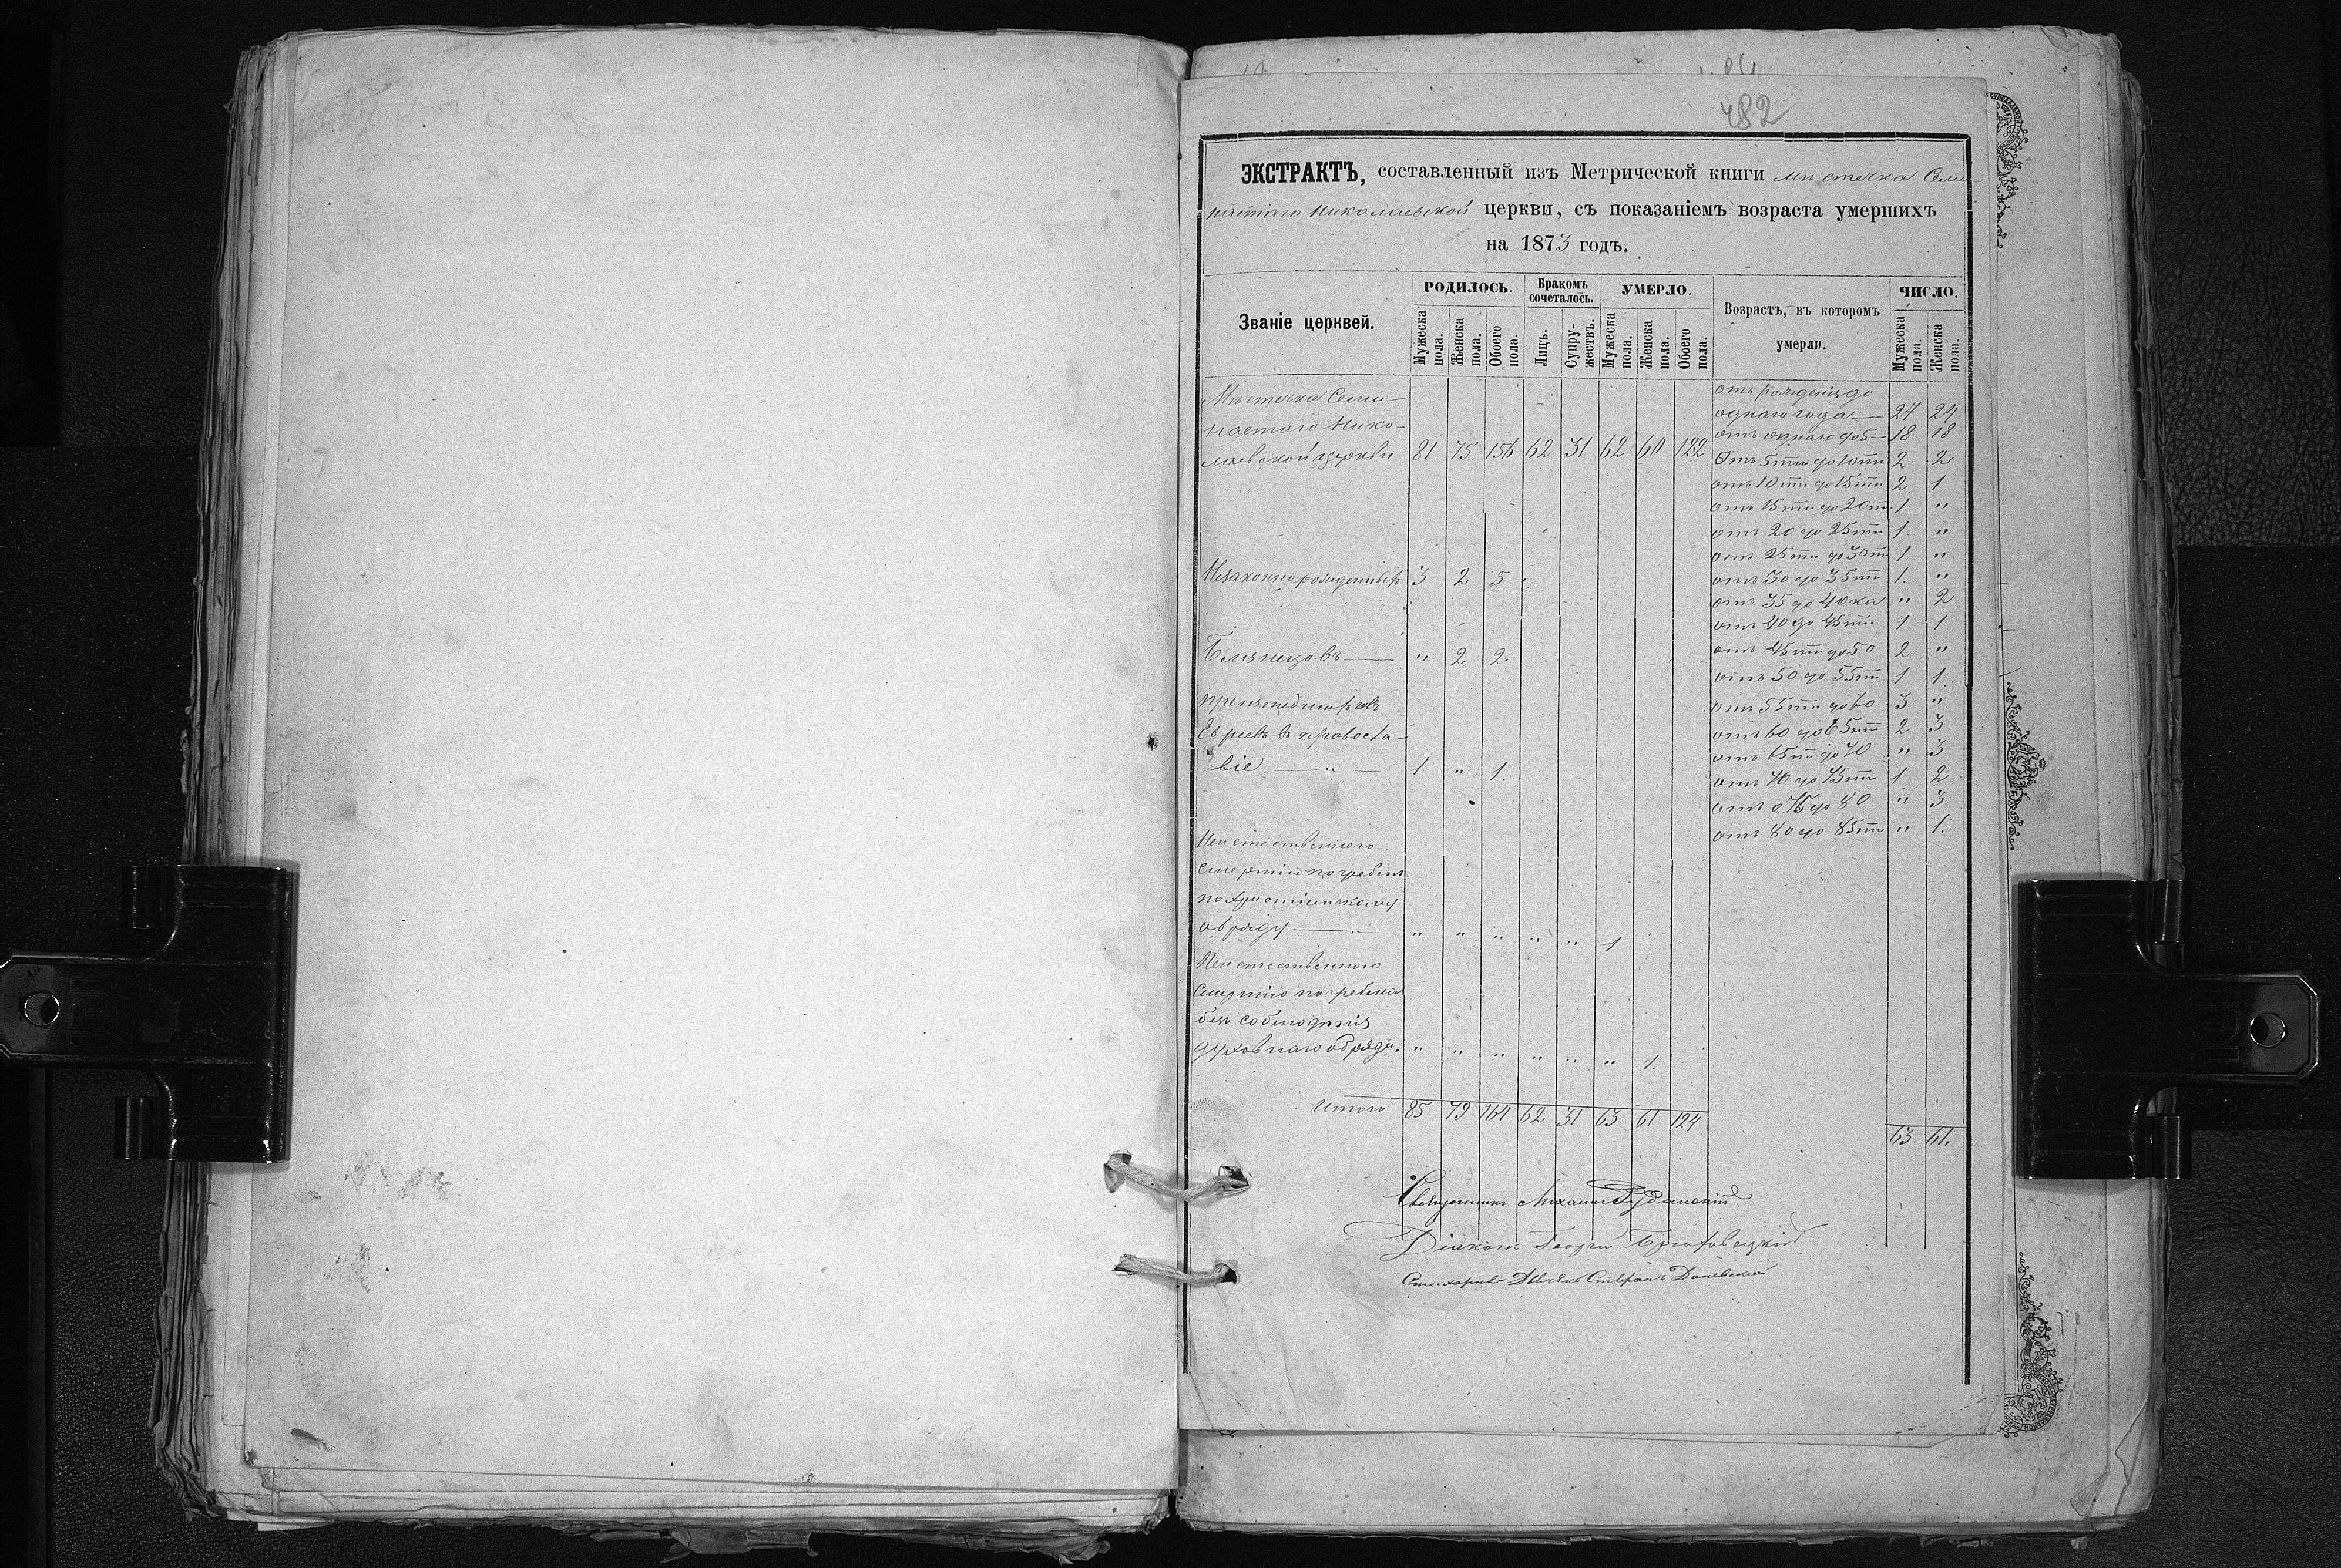 482
ЭКСТРАКТЪ, составленный изъ Метрической книги мѣстечка Семи
настаго Николаевской церкви, съ показаніемъ возраста умершихъ
на 1873 годъ.
Званіе церквей.
РОДИЛОСЬ.
Бракомъ сочеталось.
УМЕРЛО.
Возрастъ, въ которомъ умерли.
ЧИСЛО.
Мужеска пола.
Женска пола.
Обоего пола.
Лицъ.
Супружествъ.
Мужеска пола.
Женска пола.
Обоего пола.
Мужеска пола.
Женска пола.
Мѣстечка Семи-
настаго Нико-
лаевской церкви 81 75 156 62 31 62 60 122
Незаконнорожденныхъ 3 2 5
Близнецовъ — " 2 2
Евреевъ въ правосла-
віе — " — 1 " 1.
Неестественною
смертію погребенъ
по христіанскому
обряду — " " " " " " 1
Неестественною
смертію погребена
безъ соблюденія
духовнаго обряда. " " " " " " 1.
Итого 85 79 164 62 31 63 61 124
отъ рожденія до
одного года — 27 24
отъ одного до 5 — 18 18
Отъ 5ти до 10ти 2 2
отъ 10ти до 15ти 2 1
отъ 15ти до 20ти 1 "
отъ 20 до 25ти 1. "
отъ 25ти до 30ти 1 "
отъ 30 до 35ти 1. "
отъ 35 до 40ка " 2
отъ 40 до 45ти. 1 1
отъ 45ти до 50 2 "
отъ 50 до 55ти 1 1.
отъ 55ти до 60 3 "
отъ 60 до 65ти 2 3
отъ 65ти до 70 " 3
отъ 70 до 75ти 1 2
отъ 75 до 80 " 3
отъ 80 до 85ти " 1.
63 61.
Священникъ Михаилъ
Діаконъ Георгій
Стефанъ